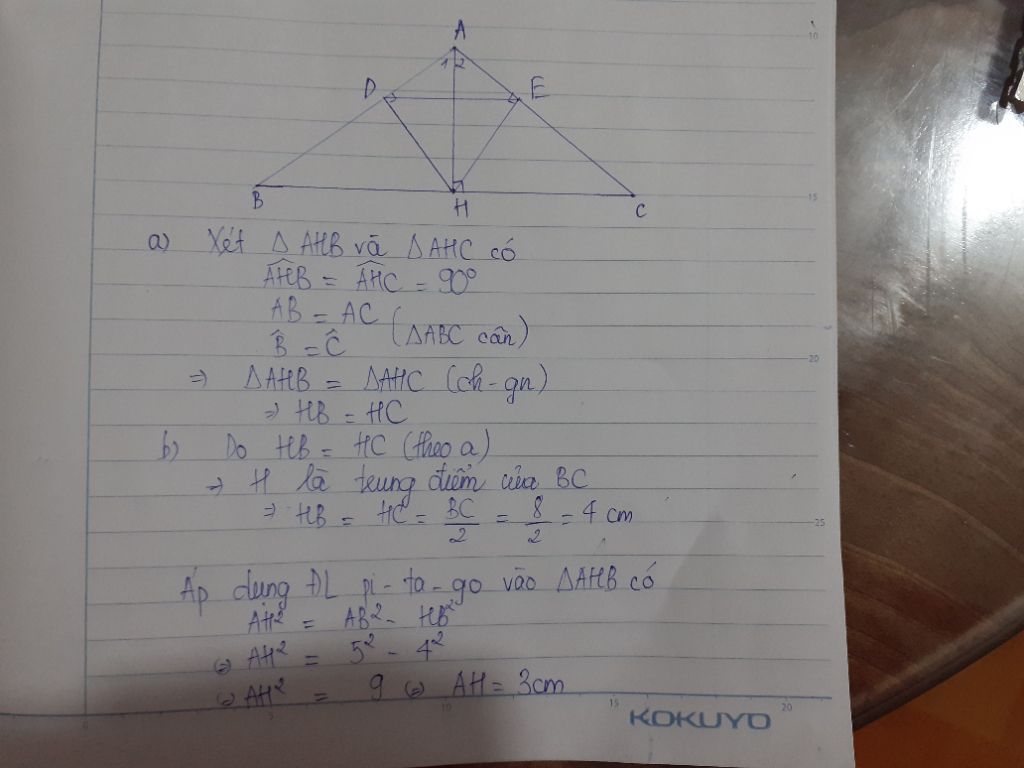 A
1 2
D E
B H C
10
15
a) Xét Δ AHB và Δ AHC có
AHB̂ = AHĈ = 90°
AB = AC
B̂ = Ĉ (ΔABC cân)
⇒ ΔAHB = ΔAHC (ch-gn)
20
⇒ HB = HC
b) Do HB = HC (theo a)
⇒ H là trung điểm của BC
⇒ HB = HC = BC/2 = 8/2 = 4 cm
25
Áp dụng ĐL pi-ta-go vào ΔAHB có
AH² = AB² - HB²
⇔ AH² = 5² - 4²
⇔ AH² = 9 ⇔ AH = 3cm
5 10 15 20
KOKUYO